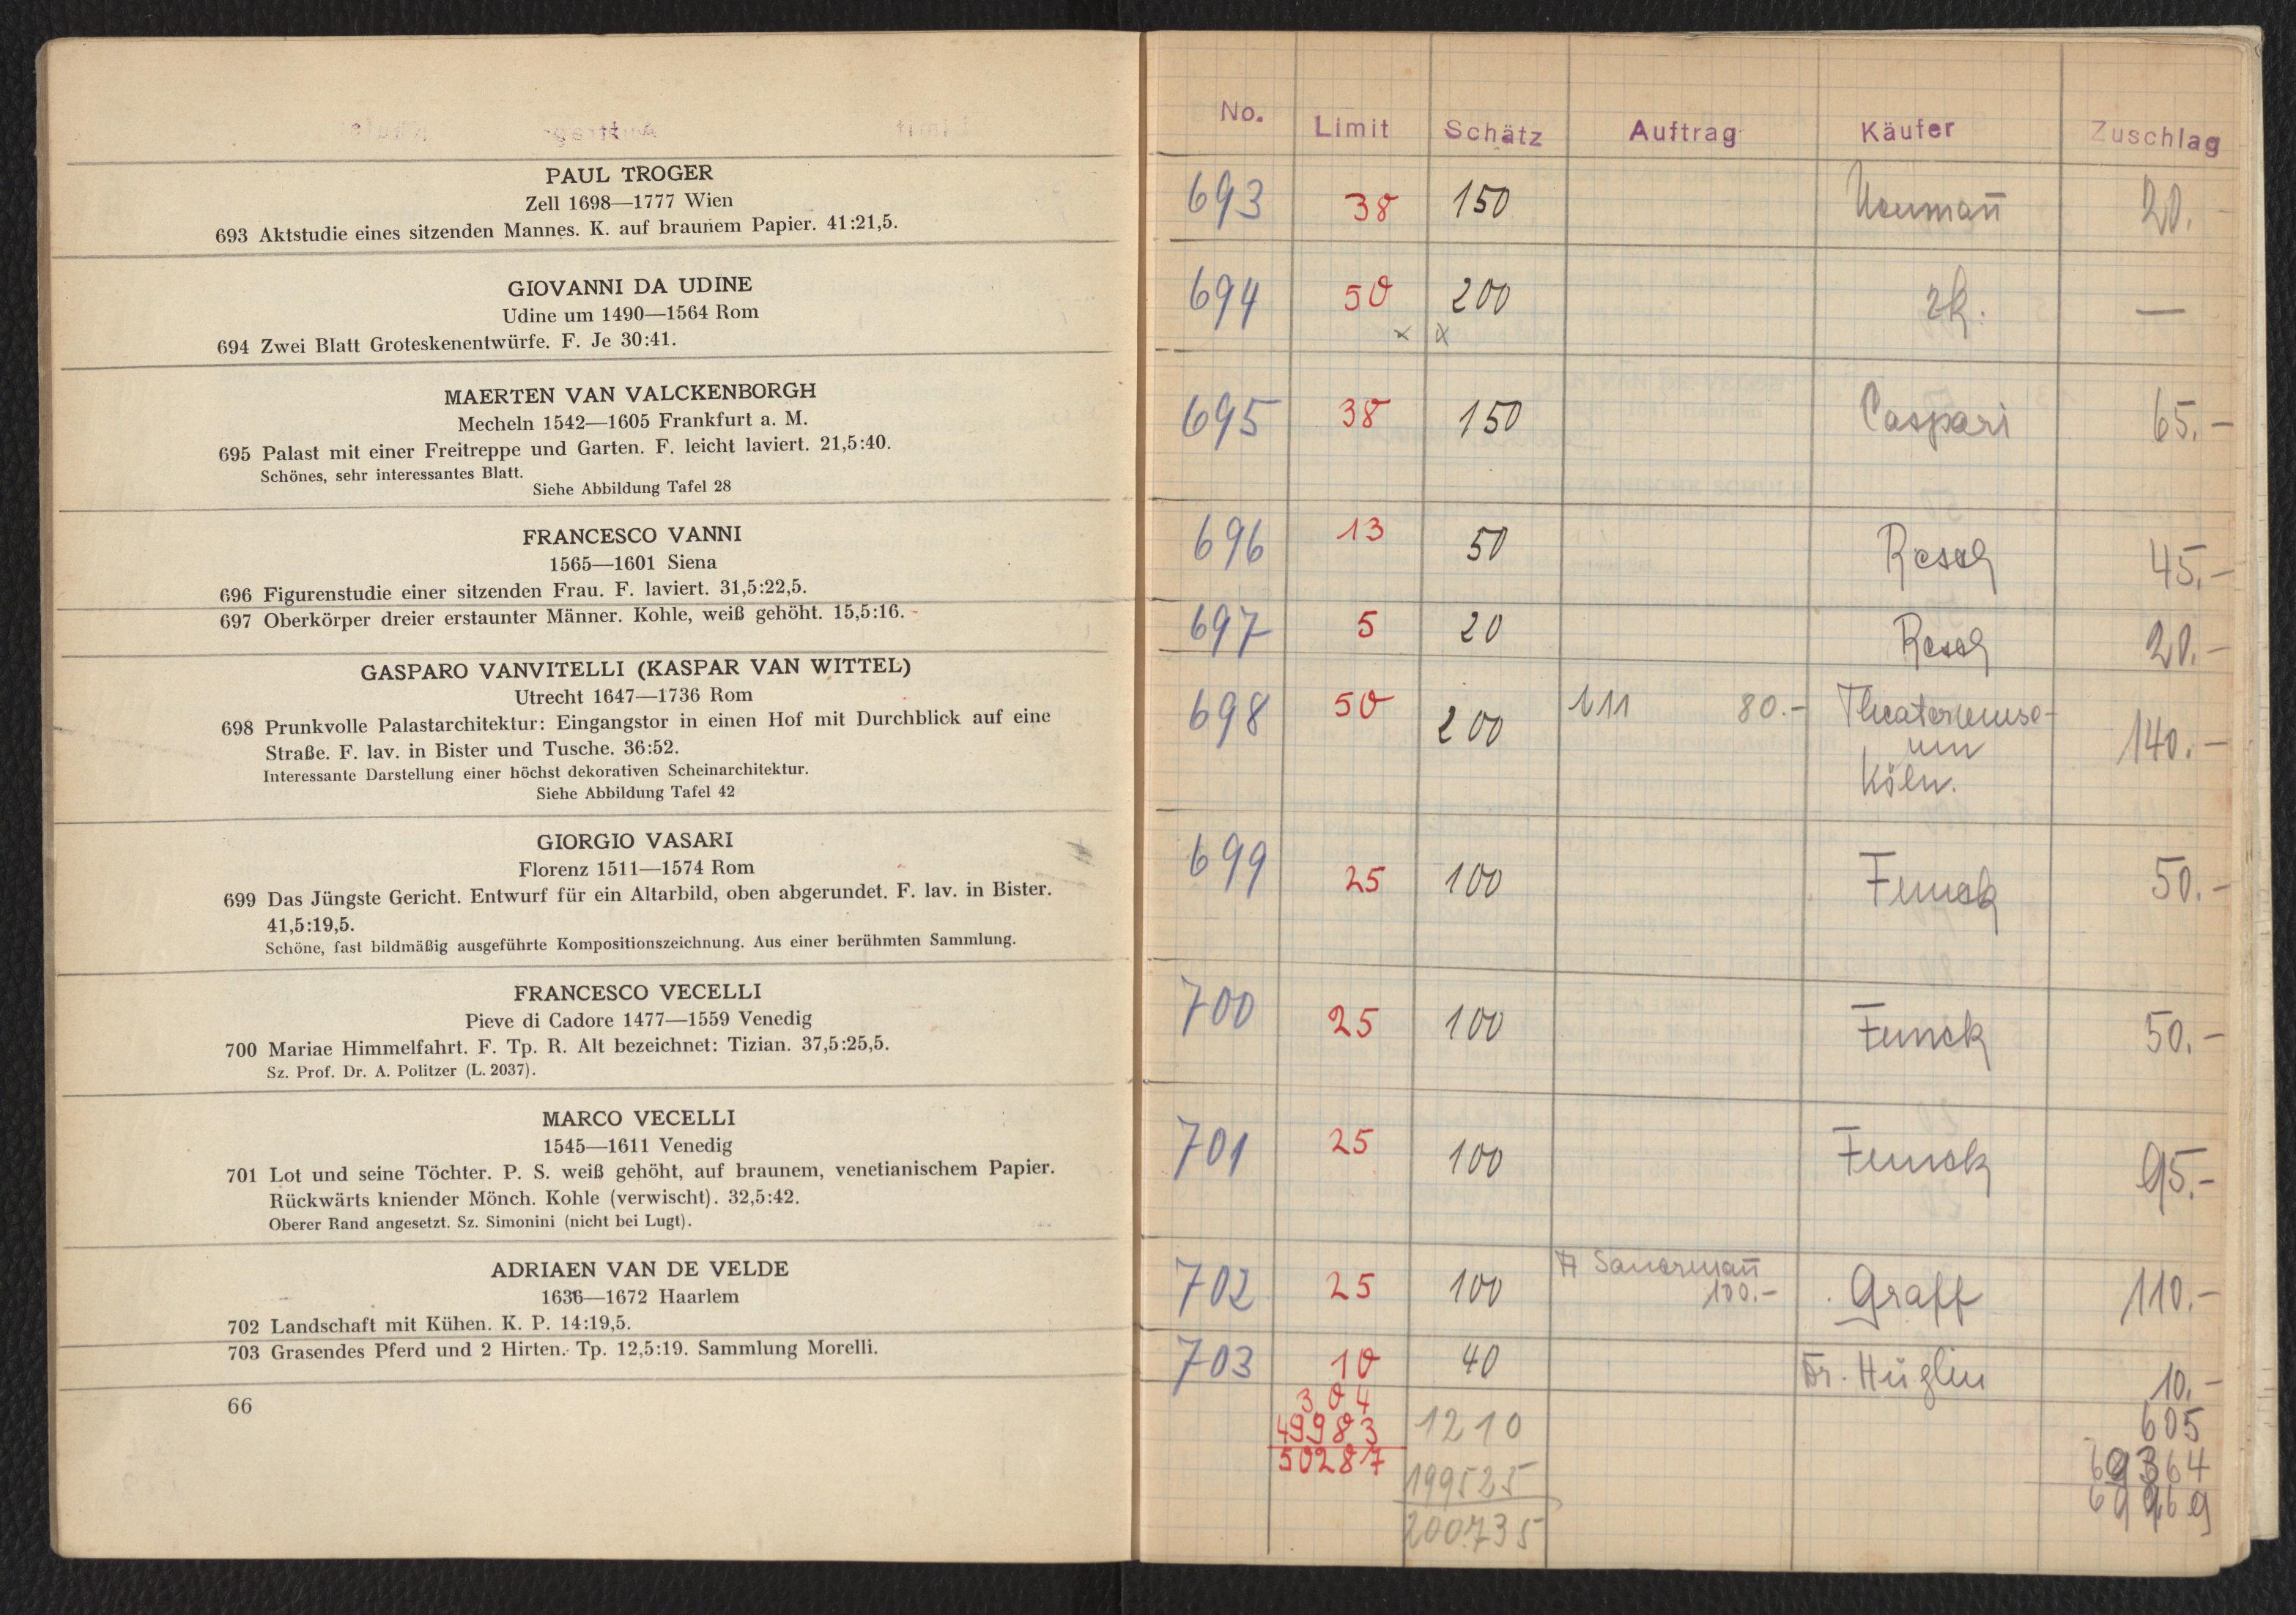 PAUL TROGER
Zell 1698—1777 Wien
693 Aktstudie eines sitzenden Mannes. K. auf braunem Papier. 41:21,5.
GIOVANNI DA UDINE
Udine um 1490—1564 Rom
694 Zwei Blatt Groteskenentwürfe. F. Je 30:41.
MAERTEN VAN VALCKENBORGH
Mecheln 1542—1605 Frankfurt a. M.
695 Palast mit einer Freitreppe und Garten. F. leicht laviert. 21,5:40.
Schönes, sehr interessantes Blatt.
Siehe Abbildung Tafel 28
FRANCESCO VANNI
1565—1601 Siena
696 Figurenstudie einer sitzenden Frau. F. laviert. 31,5:22,5.
697 Oberkörper dreier erstaunter Männer. Kohle, weiß gehöht. 15,5:16.
GASPARO VANVITELLI (KASPAR VAN WITTEL)
Utrecht 1647—1736 Rom
698 Prunkvolle Palastarchitektur: Eingangstor in einen Hof mit Durchblick auf eine
Straße. F. lav. in Bister und Tusche. 36:52.
Interessante Darstellung einer höchst dekorativen Scheinarchitektur.
Siehe Abbildung Tafel 42
GIORGIO VASARI
Florenz 1511—1574 Rom
699 Das Jüngste Gericht. Entwurf für ein Altarbild, oben abgerundet. F. lav. in Bister.
41,5:19,5.
Schöne, fast bildmäßig ausgeführte Kompositionszeichnung. Aus einer berühmten Sammlung.
FRANCESCO VECELLI
Pieve di Cadore 1477—1559 Venedig
700 Mariae Himmelfahrt. F. Tp. R. Alt bezeichnet: Tizian. 37,5:25,5.
Sz. Prof. Dr. A. Politzer (L. 2037).
MARCO VECELLI
1545—1611 Venedig
701 Lot und seine Töchter. P. S. weiß gehöht, auf braunem, venetianischem Papier.
Rückwärts kniender Mönch. Kohle (verwischt). 32,5:42.
Oberer Rand angesetzt. Sz. Simonini (nicht bei Lugt).
ADRIAEN VAN DE VELDE
1636—1672 Haarlem
702 Landschaft mit Kühen. K. P. 14:19,5.
703 Grasendes Pferd und 2 Hirten. Tp. 12,5:19. Sammlung Morelli.
66
No. Limit Schätz Auftrag Käufer Zuschlag
693 38 150 Neumañ 20.
694 50 200 zk. —
x x
695 38 150 Caspari 65.-
696 13 50 Resch 45.-
697 5 20 Resch 20.-
698 50 200 111 80.- Theatermuse-
um 140.-
Köln.
699 25 100 Funck 50.-
700 25 100 Funck 50.-
701 25 100 Funck 95.-
702 25 100 Sauermañ
100.- Graff 110.-
703 10 40 Dr. Hüglin 10.-
304 1210 605
49983 199525 69364
50287 200.735